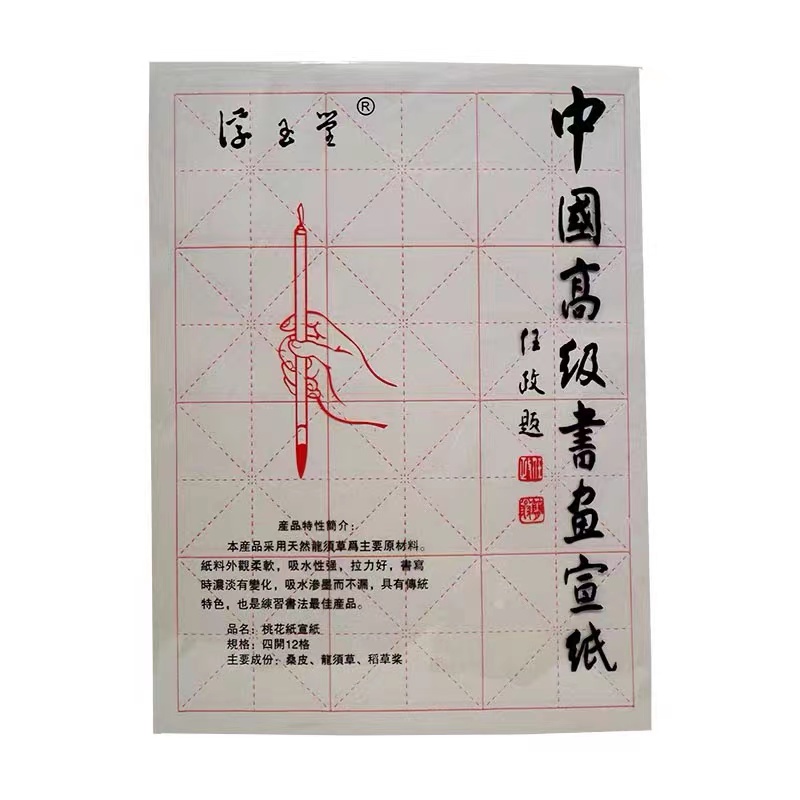 浮玉堂®
中國高级書畫宣紙
任政题
産品特性簡介：
本産品采用天然龍須草爲主要原材料。
紙料外觀柔軟，吸水性强，拉力好，書寫
時濃淡有變化，吸水滲墨而不漏，具有傳統
特色，也是練習書法最佳産品。
品名：桃花紙宣紙
規格：四開12格
主要成份：桑皮、龍須草、稻草桨